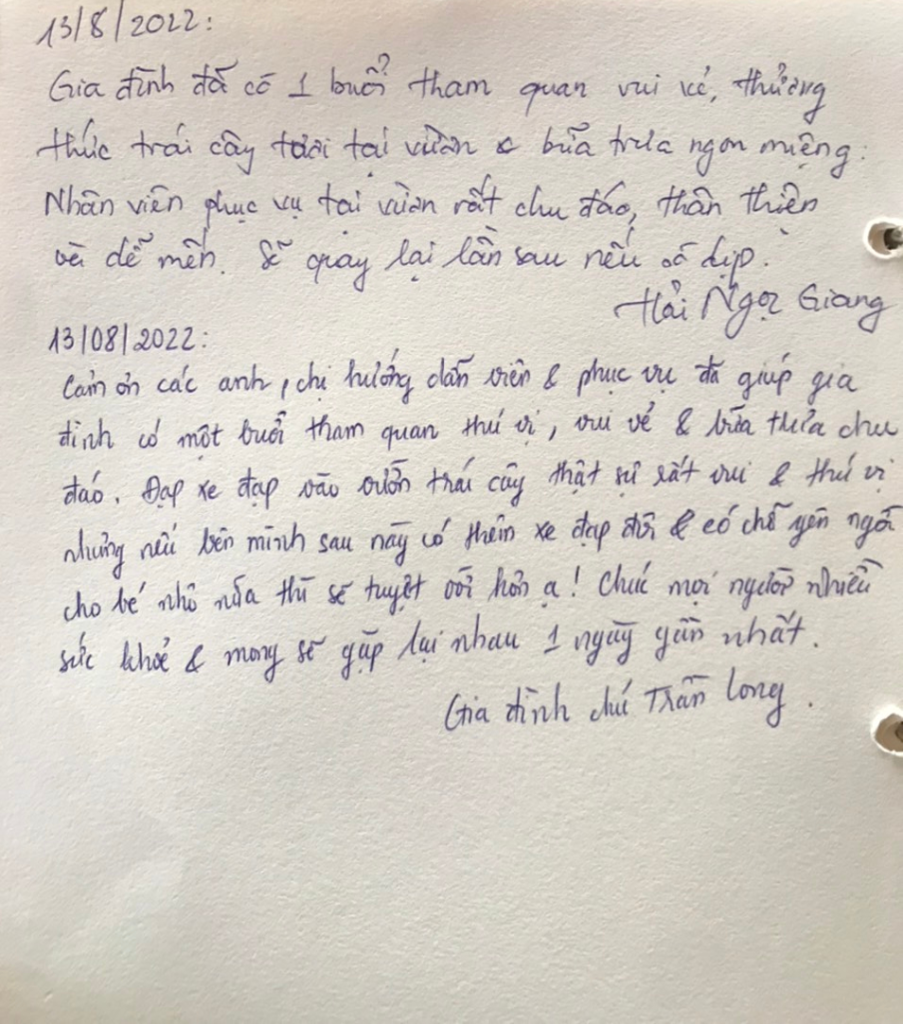 13/8/2022:
Gia đình đã có 1 buổi tham quan vui vẻ, thưởng
thức trái cây tươi tại vườn & bữa trưa ngon miệng.
Nhân viên phục vụ tại vườn rất chu đáo, thân thiện
và dễ mến. Sẽ quay lại lần sau nếu có dịp.
Hải Ngọc Giang
13/08/2022:
Cảm ơn các anh, chị hướng dẫn viên & phục vụ đã giúp gia
đình có một buổi tham quan thú vị, vui vẻ & bữa trưa chu
đáo. Đạp xe đạp vào vườn trái cây thật sự rất vui & thú vị
nhưng nếu bên mình sau này có thêm xe đạp đôi & có chỗ yên ngồi
cho bé nhỏ nữa thì sẽ tuyệt vời hơn ạ! Chúc mọi người nhiều
sức khoẻ & mong sẽ gặp lại nhau 1 ngày gần nhất.
Gia đình chú Trần Long.